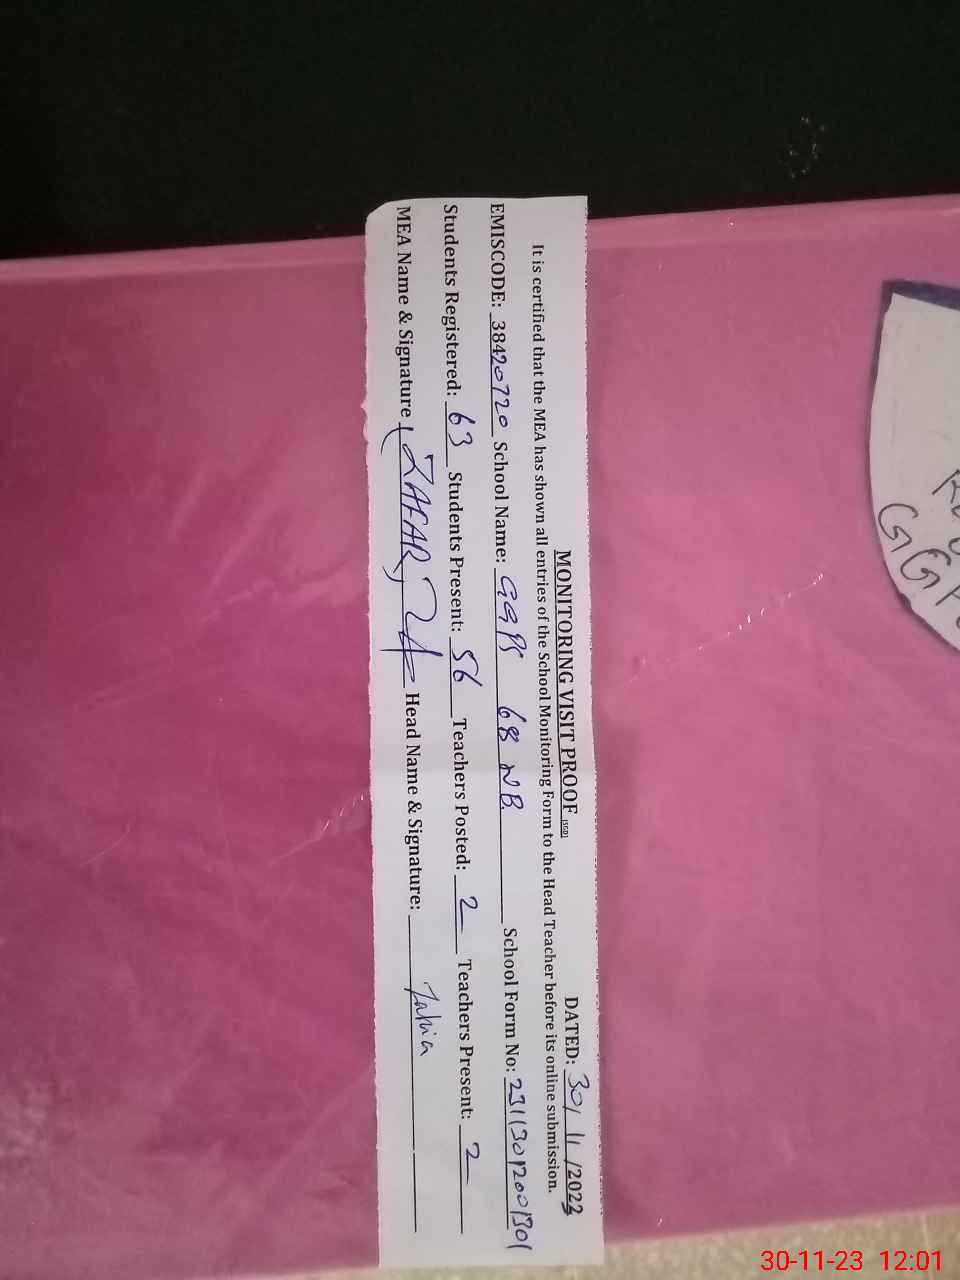 MONITORING VISIT PROOF (SGD) DATED: 30/11/2023
It is certified that the MEA has shown all entries of the School Monitoring Form to the Head Teacher before its online submission.
EMISCODE: 38420720 School Name: GGPS 68 NB. School Form No:
Students Registered: 63 Students Present: 56 Teachers Posted: 2 Teachers Present: 2
MEA Name & Signature (ZAFAR) Head Name & Signature: Zakia
30-11-23 12:01